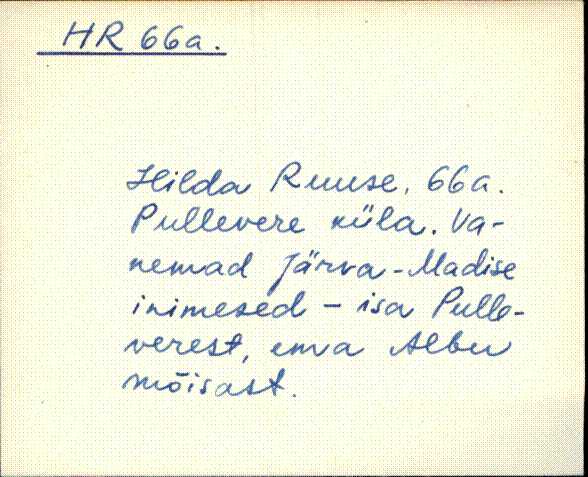 HR 66a.
Hilda Ruuse, 66a.
Pullevere küla. Va-
nemad Järva-Madise
inimesed - isa Pulle-
verest, ema Albu
mõisast.